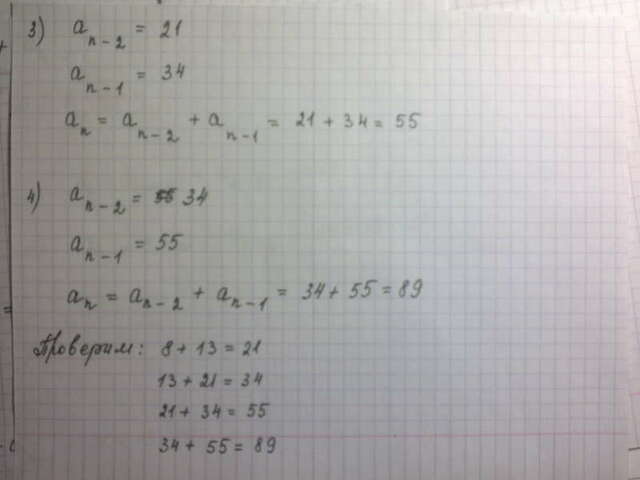 3) a_{n-2} = 21
a_{n-1} = 34
a_n = a_{n-2} + a_{n-1} = 21 + 34 = 55
4) a_{n-2} = 34
a_{n-1} = 55
a_n = a_{n-2} + a_{n-1} = 34 + 55 = 89
Проверим: 8 + 13 = 21
13 + 21 = 34
21 + 34 = 55
34 + 55 = 89